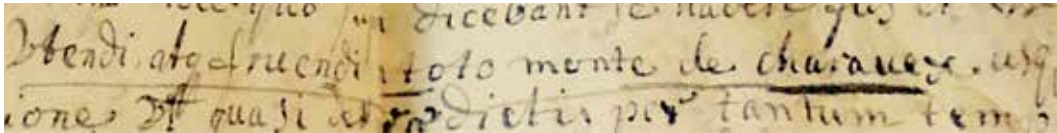 dicebant se habere jus et
Utendi atq fruendi i toto monte de charavexe. usq
ione Vt quasi dictis per tantum temp